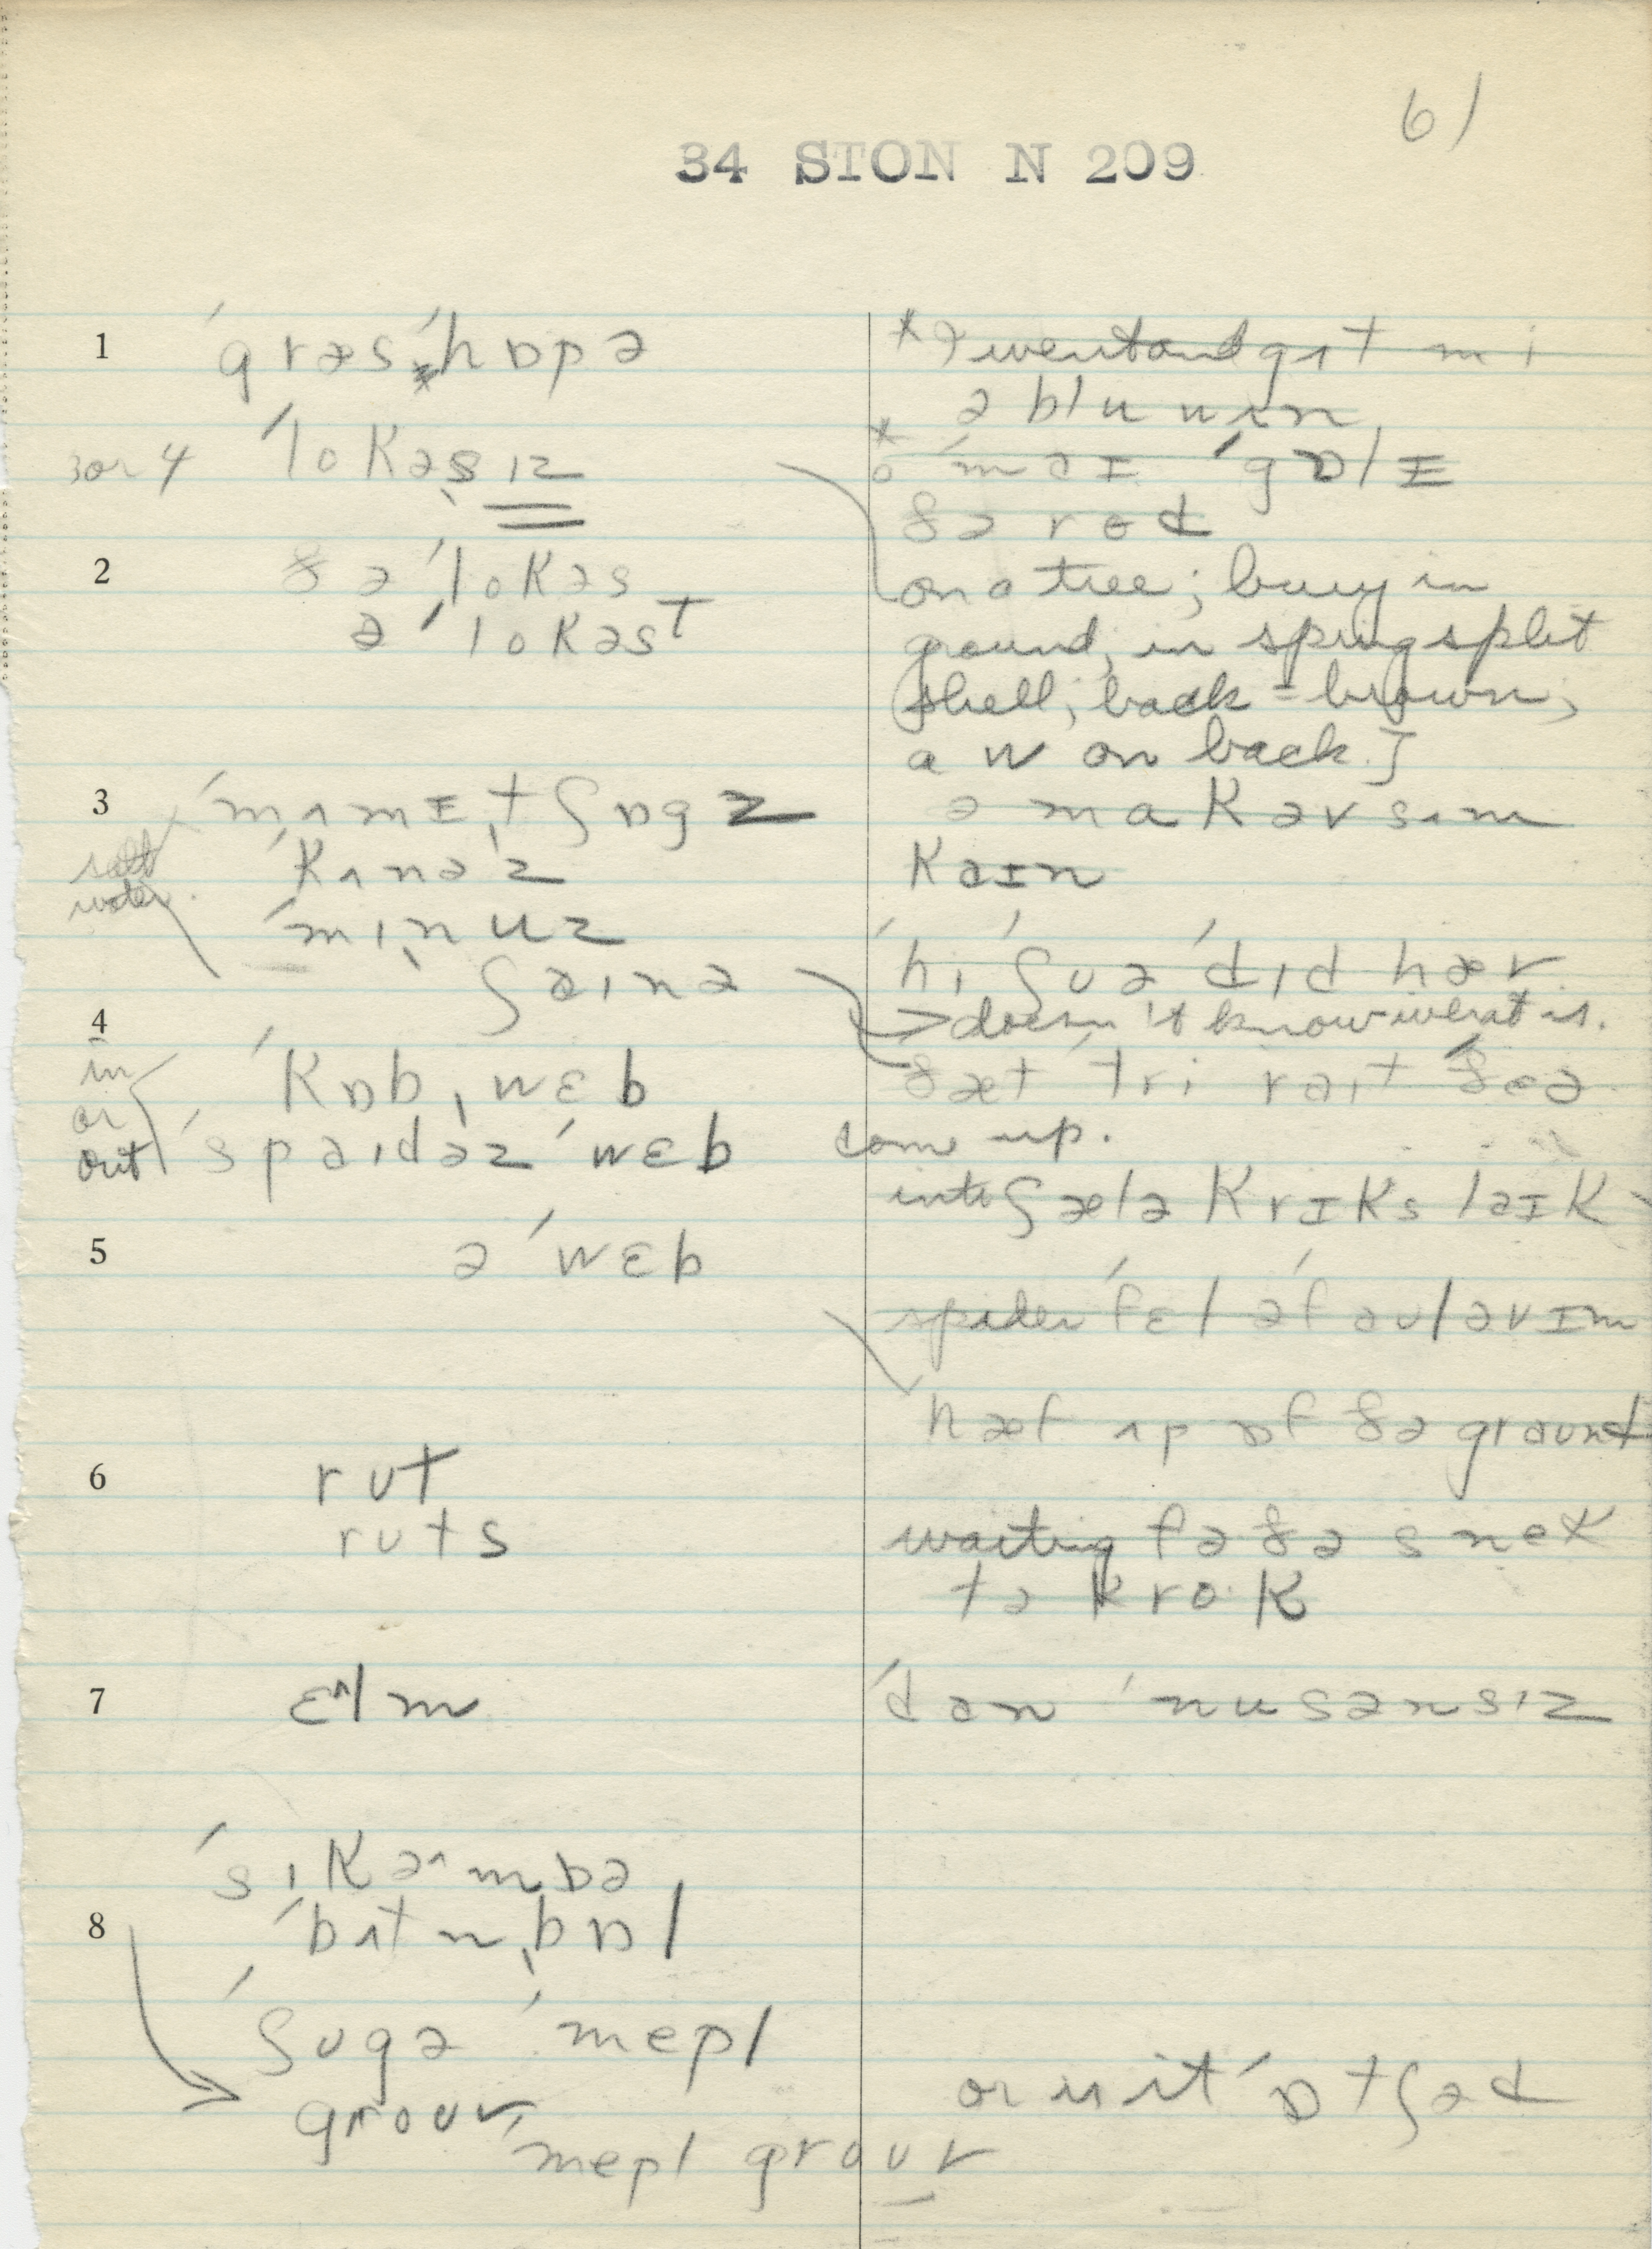 61
34 STON N 209
1 ˈgræsˈhɒpə
3 or 4 ˈlokəsˌɪz
2 ðə ˈlokəs
ə ˈlokəst
3 ˈmʌmɪˌtʃɒgz
salt water ˈkɪnəˈz
ˈmɪˌnuz
ʃaɪnə
4 in or out ˈkɒbˌwɛb
ˈspaɪdəz ˈwɛb
5 ə ˈwɛb
6 rut
ruts
7 ɛ^lm
ˈsɪkəˈmɒə
8 ˈbʌtnˌbɒl
ˈʃugə ˈmepl
grouv
ˈmepl grouv
* I went and gɪt mi
ə blu wʌn
* o ˈmaɪ ˈgɒlɪ
ðə rod
on a tree; bury in
ground; in spring split
shell; back = brown;
a W on back.]
ə makəv sʌm
kaɪn
ˈhi ˈʃuə ˈdɪd hæv
→ doesn't know what is.
ðæt tri raɪt ˈðeə
come up.
into ʃælə krɪks laɪk
spider ˈfɛl əˈf aulavɪm
hæf ʌp ɒf ðə graund
waiting fə ðə snek
tə krok
ˈdæn ˈnusənsɪz
or is it ˈɒtʃəd